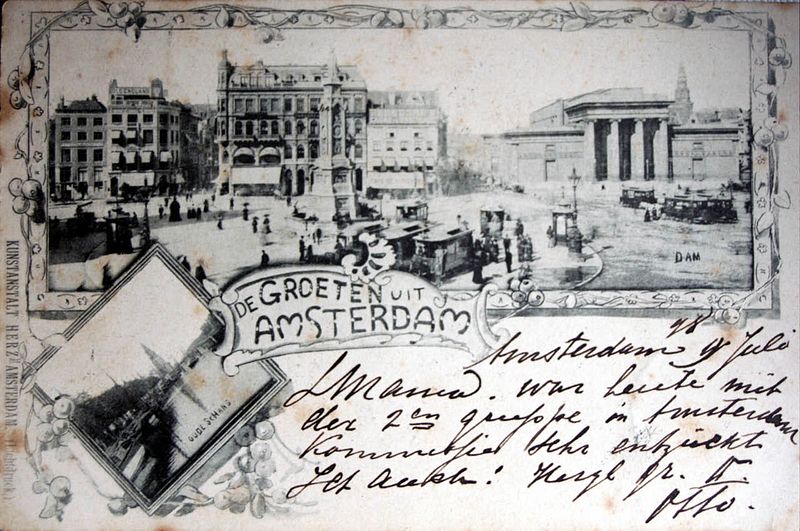 DE GROETEN UIT
AMSTERDAM
DAM
OUDE SCHANS
KUNSTANSTALT HERZ AMSTERDAM. (Lichtdruck.)
98
Amsterdam 9 Juli
L Mama. war heute mit
der 2en gruppe in Amsterdam
Sehr entzückt
Ich auch! Herzl gr.
Otto.